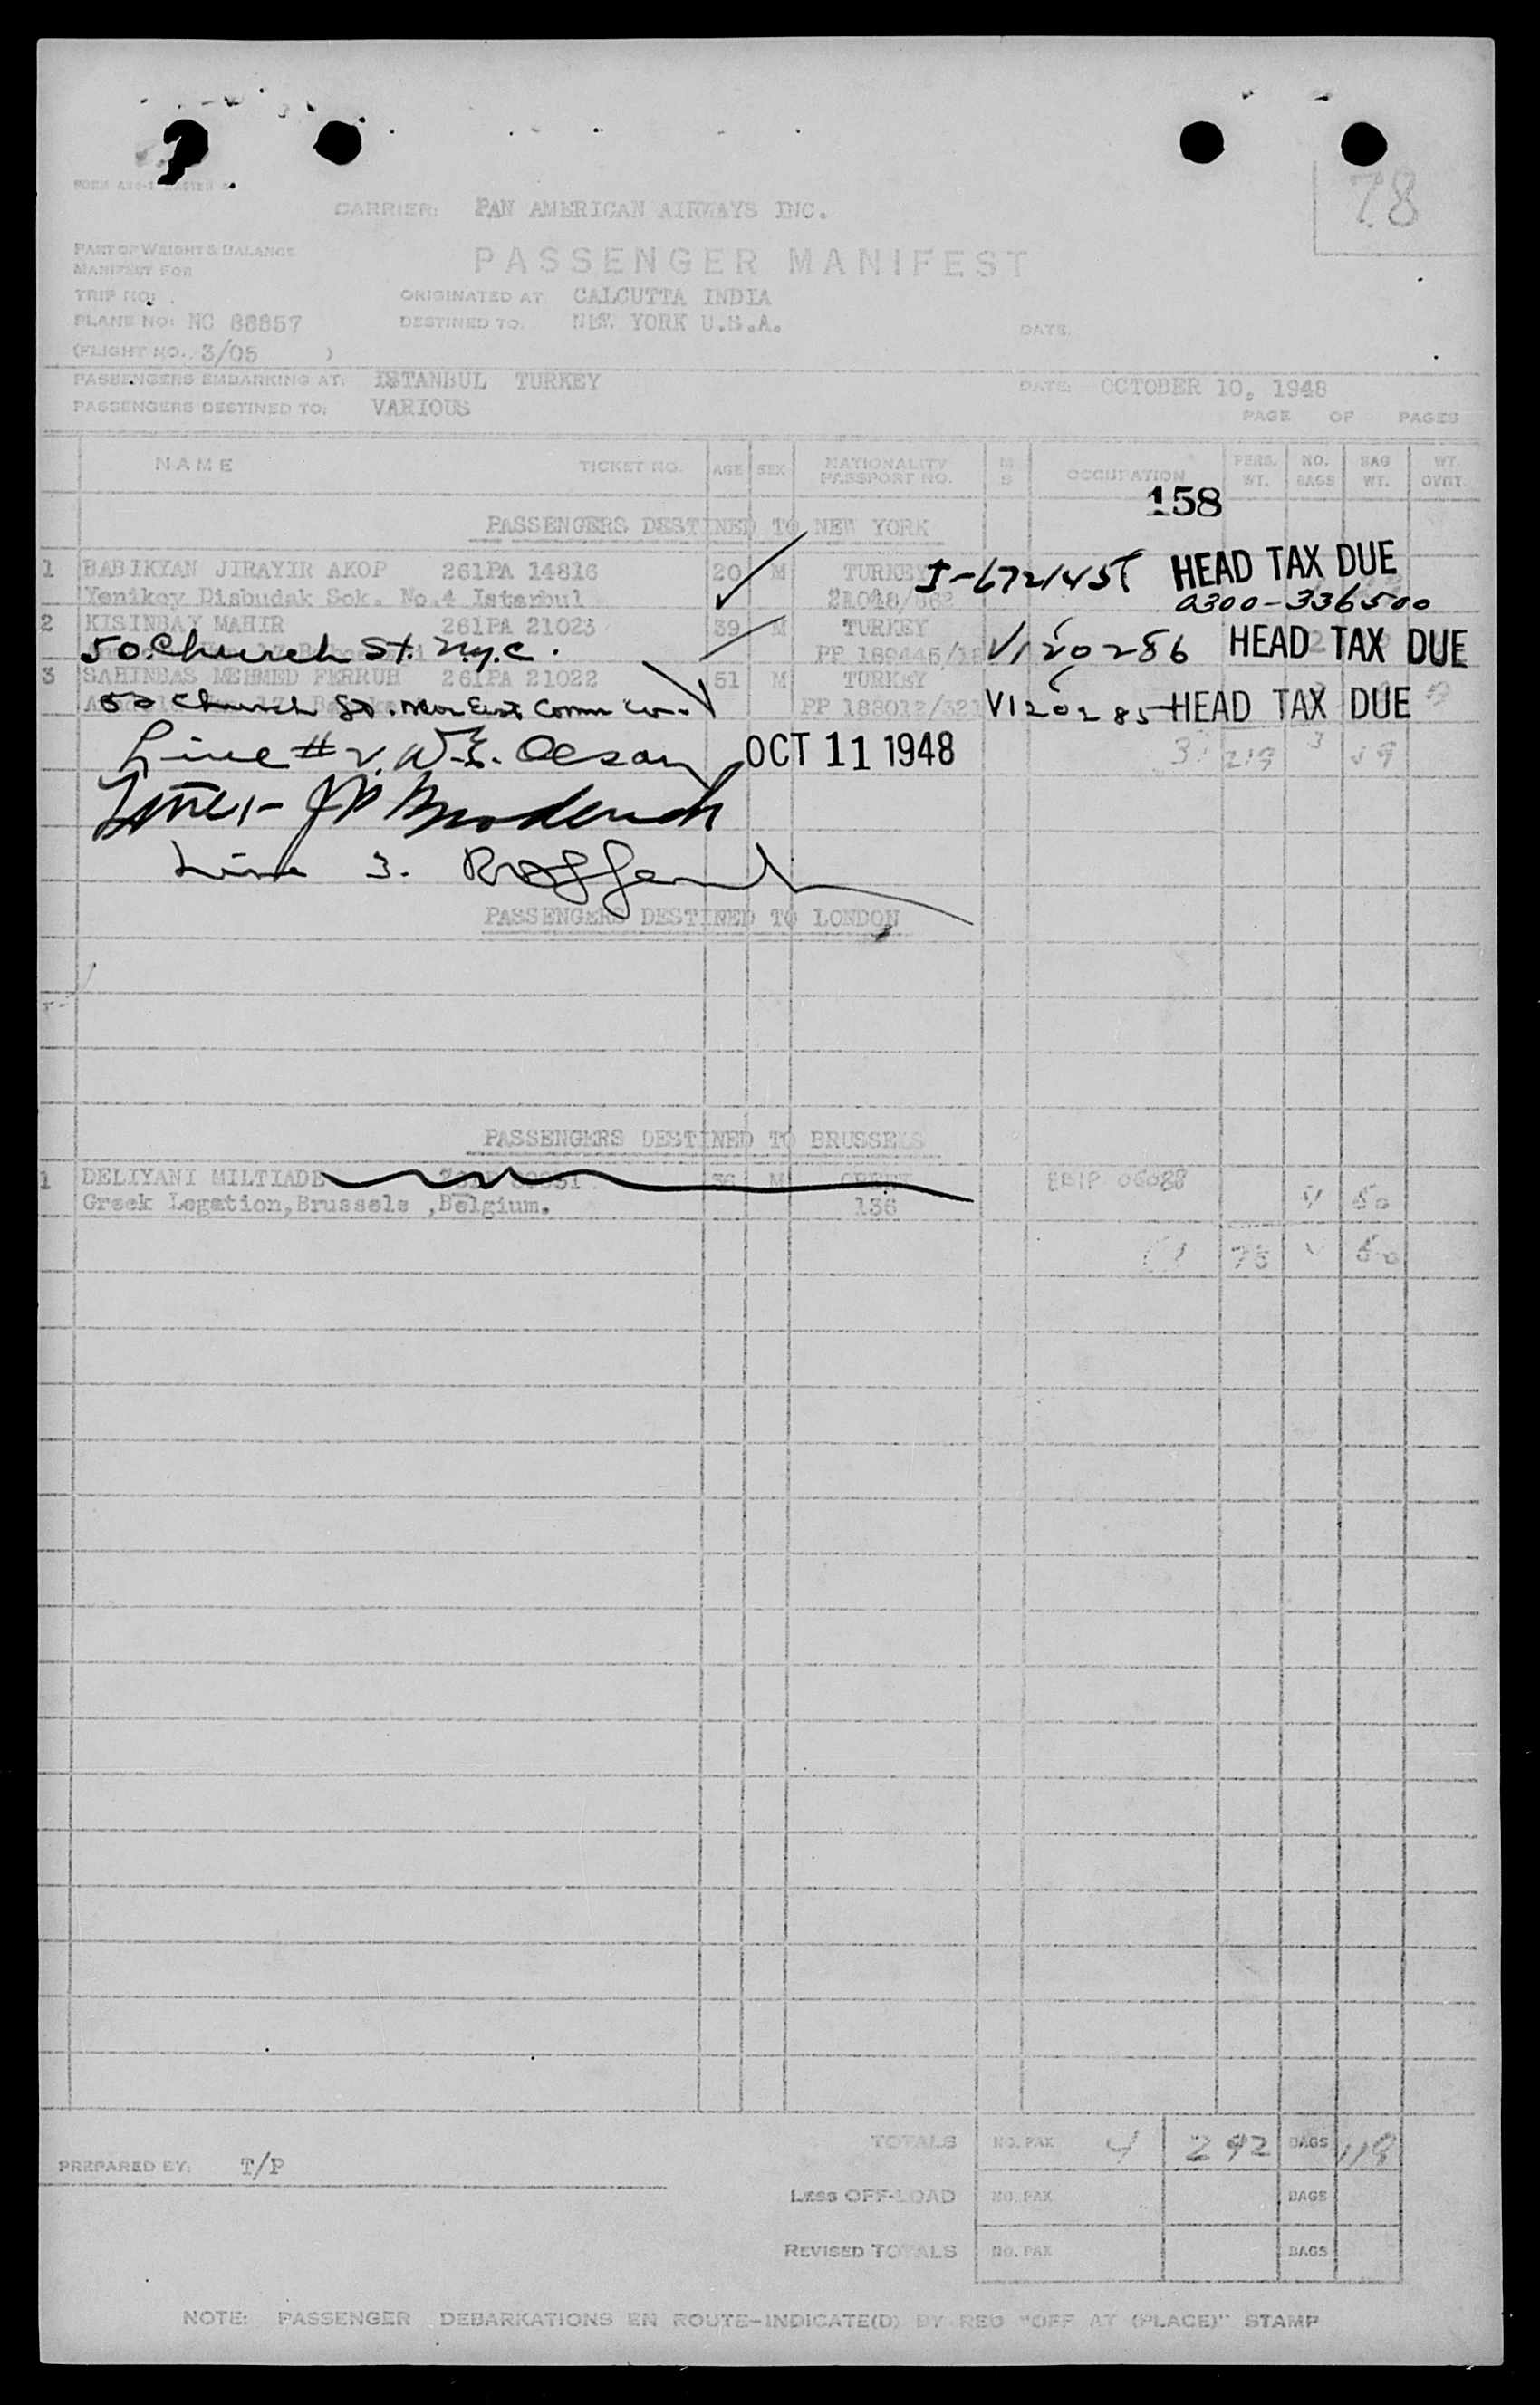 78
CARRIER: PAN AMERICAN AIRWAYS INC.
PART OF WEIGHT & BALANCE
MANIFEST FOR
PASSENGER MANIFEST
TRIP NO:
ORIGINATED AT CALCUTTA INDIA
PLANE NO: NC 88857
DESTINED TO: NEW YORK U.S.A.
DATE:
(FLIGHT NO. 3/05 )
PASSENGERS EMBARKING AT: ISTANBUL TURKEY
DATE: OCTOBER 10, 1948
PASSENGERS DESTINED TO: VARIOUS
PAGE OF PAGES
NAME TICKET NO. AGE SEX NATIONALITY PASSPORT NO. M S OCCUPATION PERS. WT. NO. BAGS BAG WT. WT. OVRT.
158
PASSENGERS DESTINED TO NEW YORK
1 BABIKYAN JIRAYIR AKOP 261PA 14816 20 M TURKEY HEAD TAX DUE
Yenikoy Disbudak Sok. No.4 Istanbul 0300-336500
2 KISINBAY MAHIR 261PA 21023 39 M TURKEY
50 Church St. N.Y.C. PP 189445/ V120286 HEAD TAX DUE
3 SAHINBAS MEHMED FERRUH 261PA 21022 51 M TURKEY
50 Church St. Near East Comm PP 188012/321 V120285 HEAD TAX DUE
Line #2. W.E. Olson OCT 11 1948 3 219 3
Line 1- JP Broderick
Line 3.
PASSENGERS DESTINED TO LONDON
PASSENGERS DESTINED TO BRUSSELS
1 DELIYANI MILTIADE 36 M GREEK
Greek Legation, Brussels ,Belgium. 136
TOTALS NO. PAX 4 292 BAGS 118
PREPARED BY: T/P
LESS OFF-LOAD NO. PAX BAGS
REVISED TOTALS NO. PAX BAGS
NOTE: PASSENGER DEBARKATIONS EN ROUTE-INDICATE(D) BY RED "OFF AT (PLACE)" STAMP